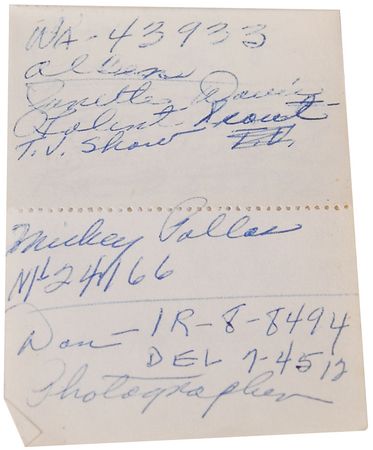 WA-43933
Janette Davis
Talent Scout
T.V. Show
Mickey Pallas
24166
Don - IR-8-8494
DEL 7-4512
Photographer